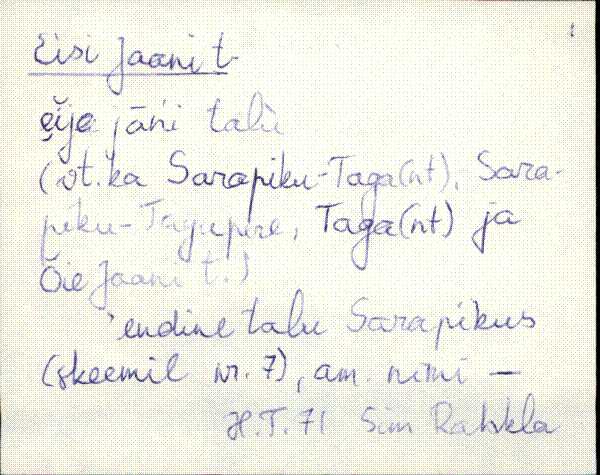 1
Eisi Jaani t.
ẹĭje jāni talù
(vt.ka Sarapiku-Taga(nt), Sara-
piku-Tagupere, Taga(nt) ja
Õie Jaani t.)
'endine talu Sarapikus
(skeemil nr. 7), am. nimi —
H.T. 71 Sim Rahkla